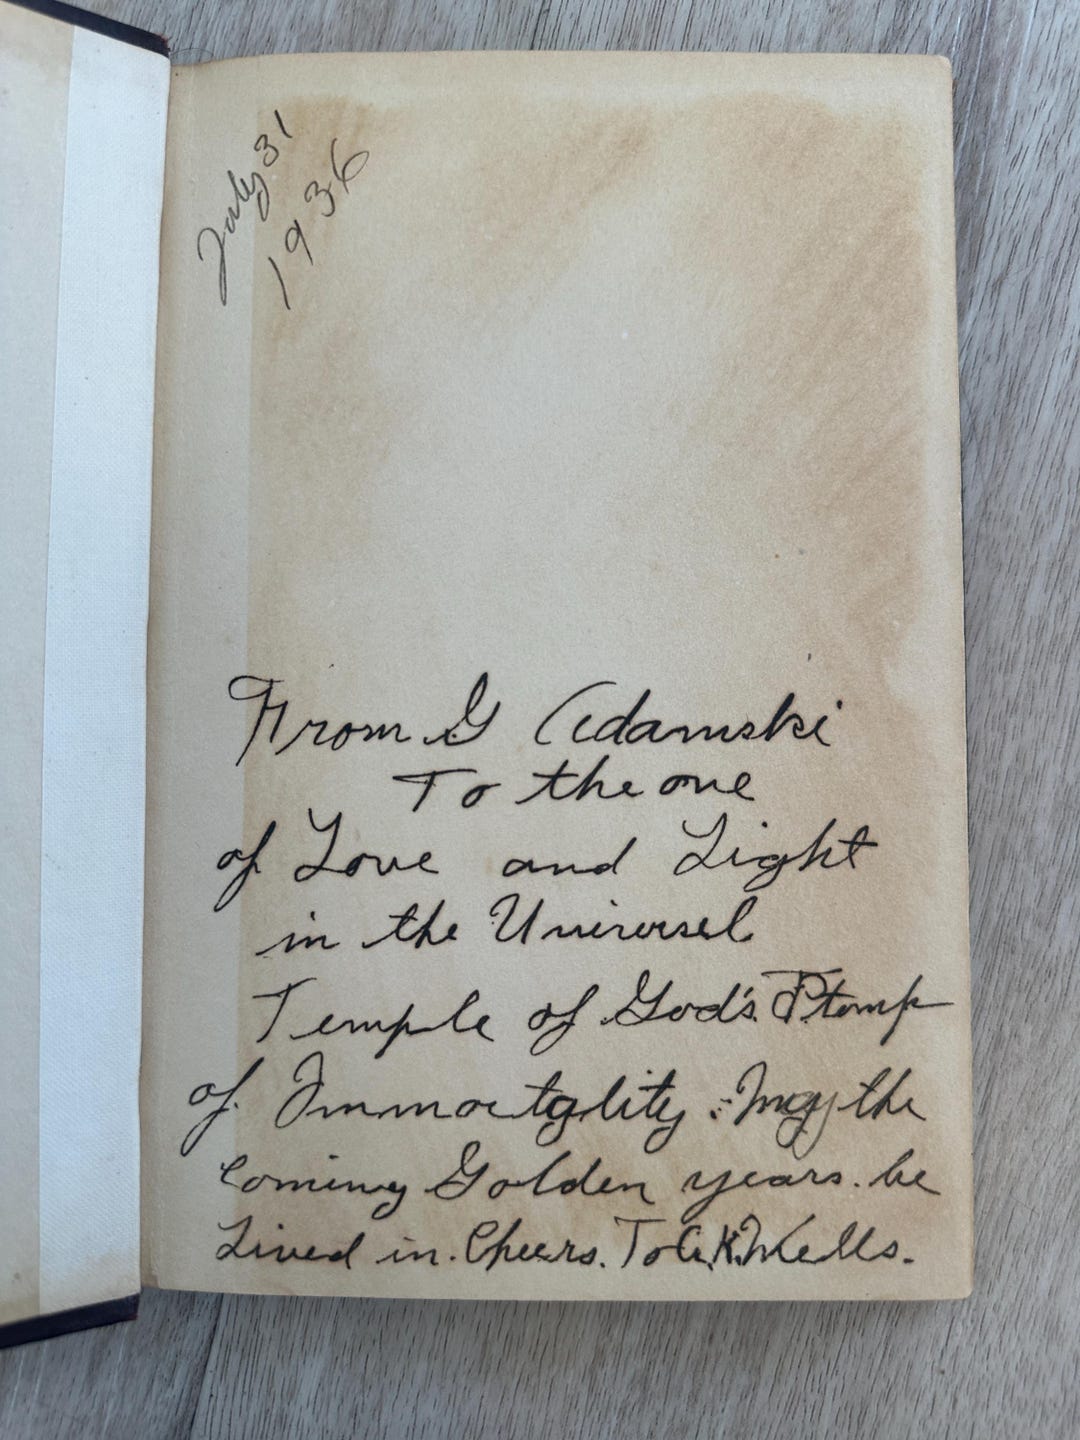 July 31
1936
From G Adamski
To the one
of Love and Light
in the Universel
Temple of God's
of Immortality May the
Coming Golden years. be
Lived in. Cheers. To G.K. Wells.